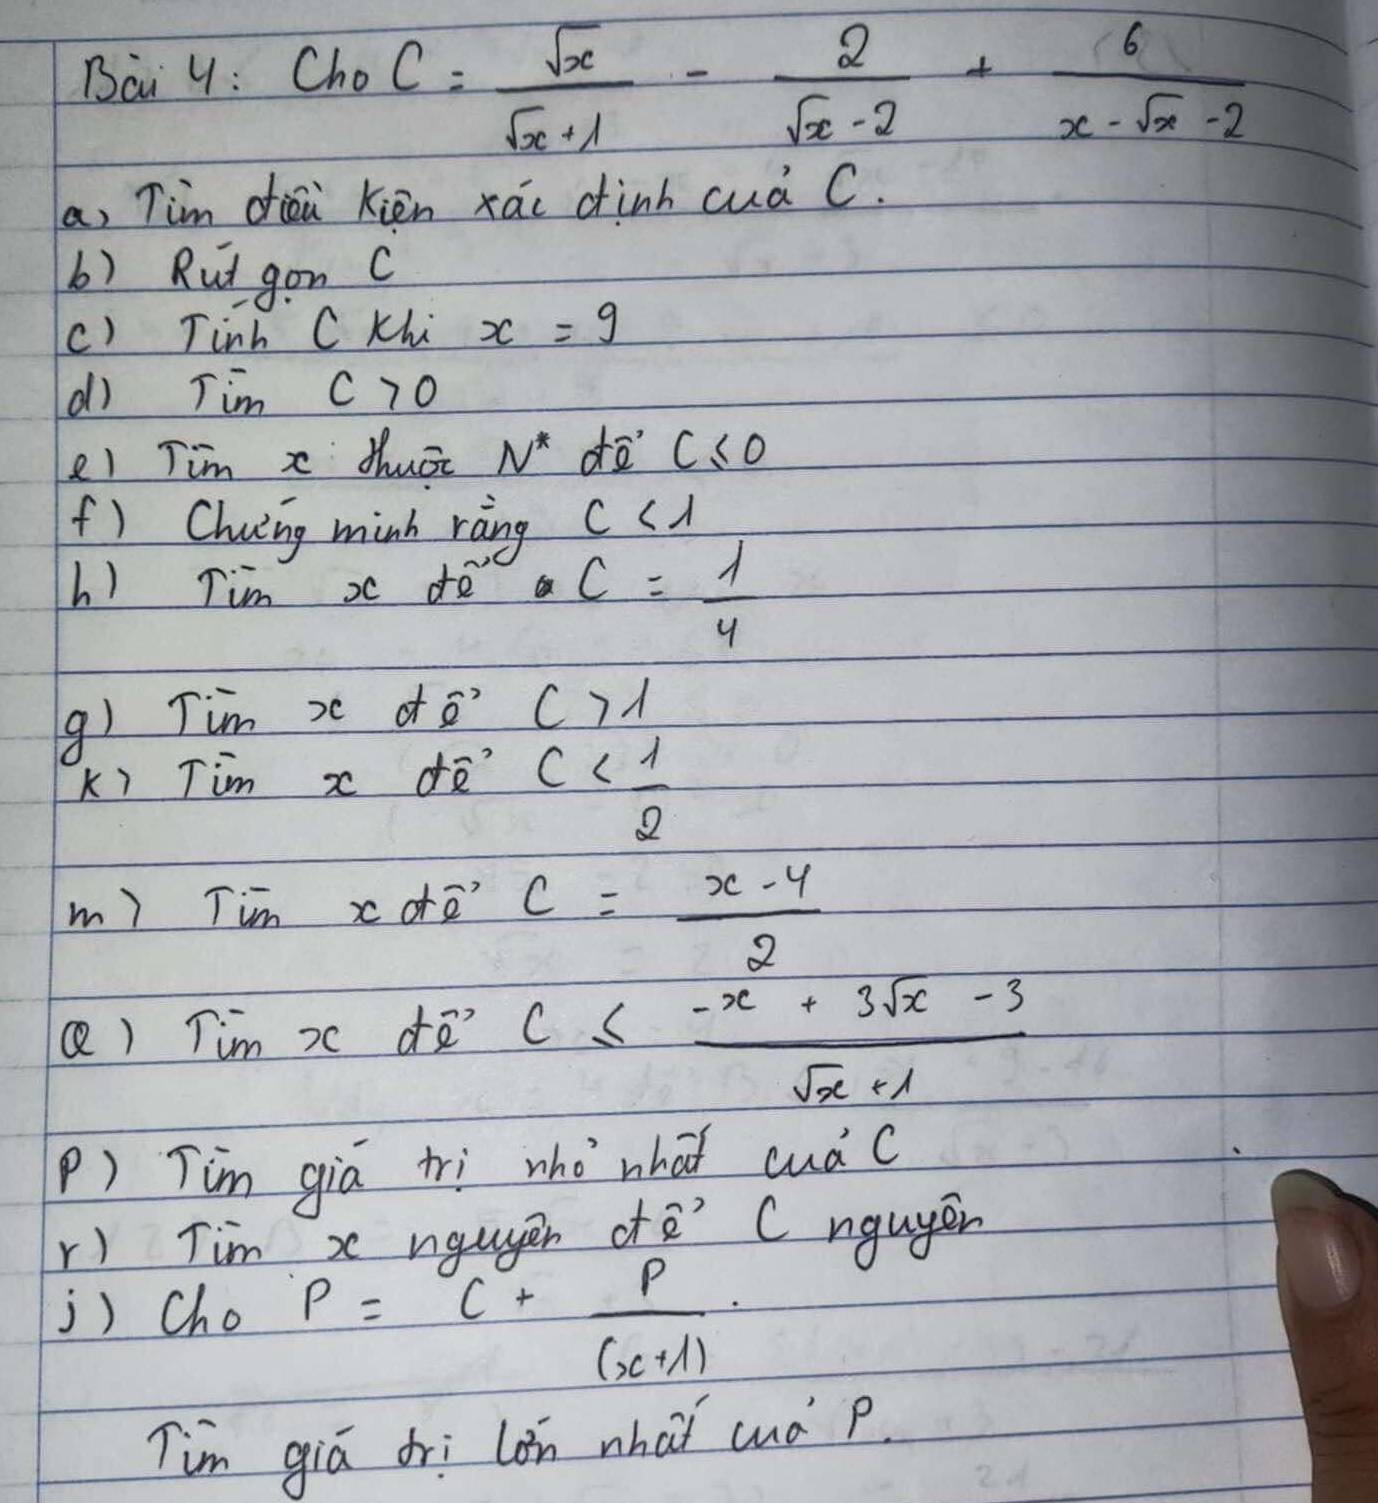 Bài 4: Cho C = √x/(√x + 1) - 2/(√x - 2) + 6/(x - √x - 2)
a, Tìm điều kiện xác định của C.
b) Rút gọn C
c) Tính C khi x = 9
d) Tìm C > 0
e) Tìm x thuộc N* để C ≤ 0
f) Chứng minh rằng C < 1
h) Tìm x để C = 1/4
g) Tìm x để C > 1
k) Tìm x để C < 1/2
m) Tìm x để C = (x - 4)/2
Q) Tìm x để C ≤ (-x + 3√x - 3)/(√x + 1)
P) Tìm giá trị nhỏ nhất của C
r) Tìm x nguyên để C nguyên
j) Cho P = C + P/(x+1).
Tìm giá trị lớn nhất của P.